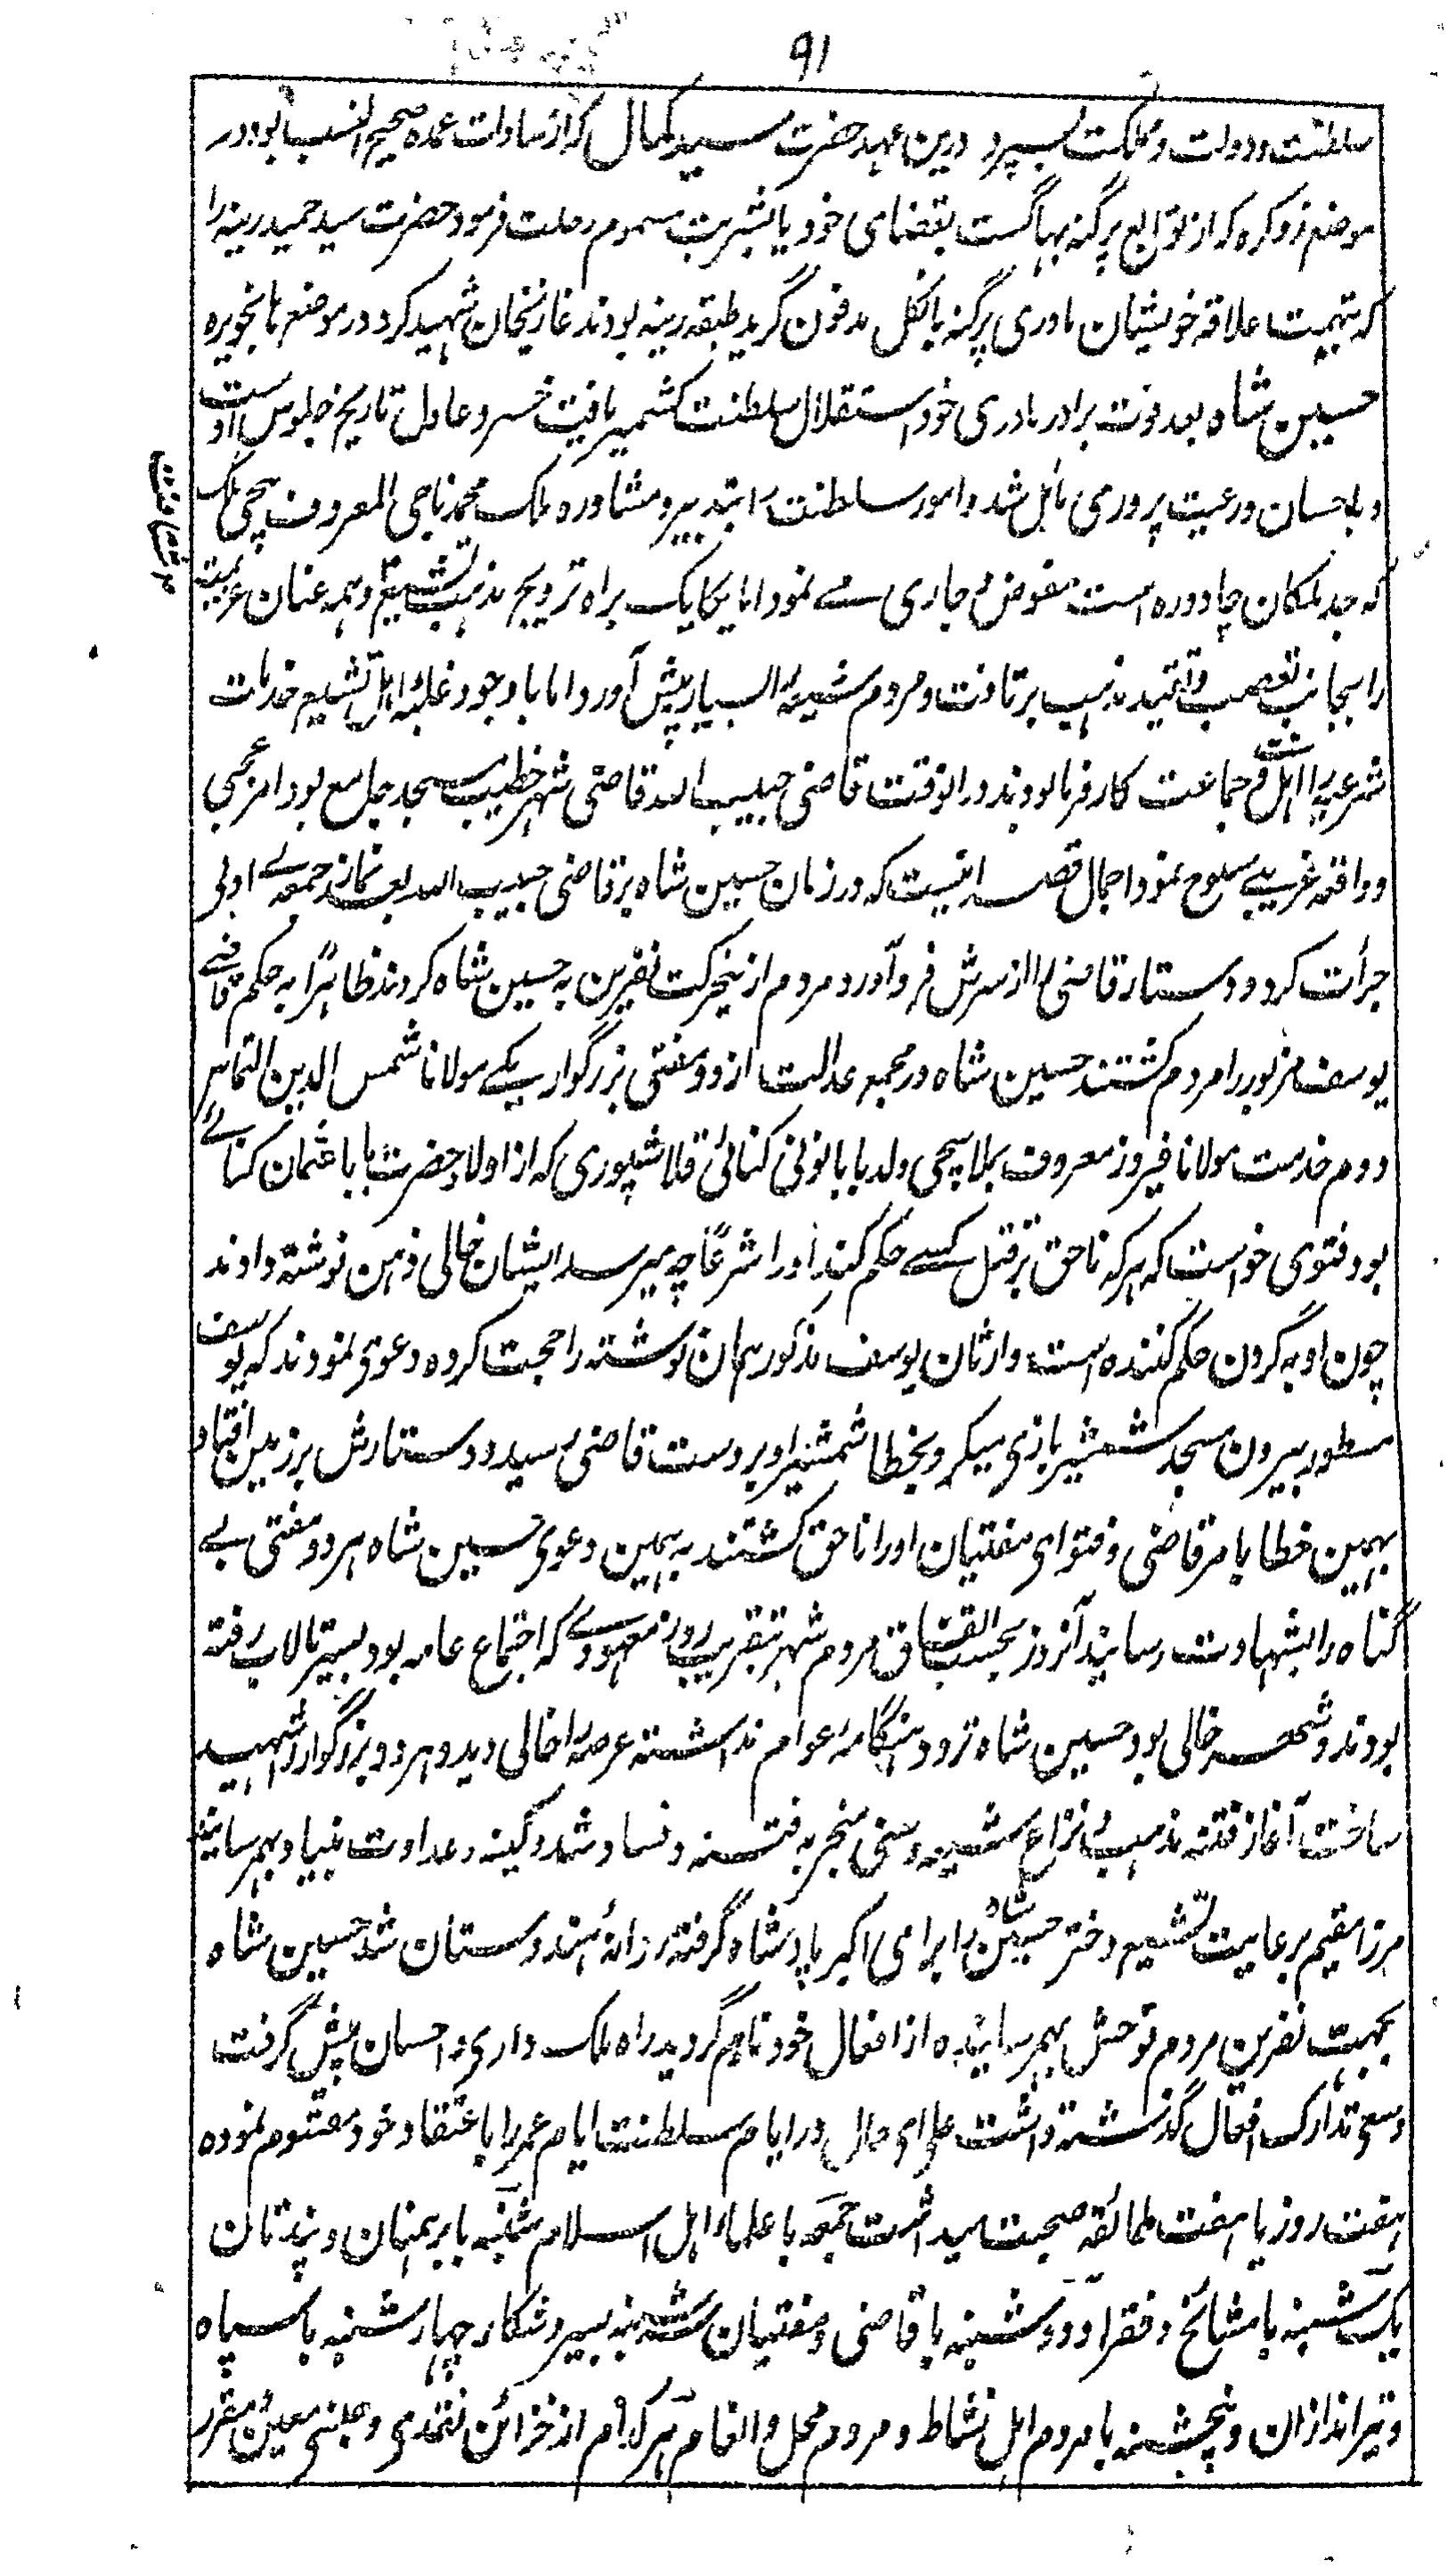 ۹۱
سلطنت و دولت و مملکت بسپرد درین عهد حضرت سید کمال که از سادات عمده صحیح النسب بود در
موضع زوکره که از توابع پرگنه بهاگست بقضای خود یا بشربت مسموم رحلت فرمود حضرت سید حمید رینه را
که بتهمت علاقه خویشان مادری پرگنه بانکل مدفون گریه طبقه رینه بودند غازیخان شهید کرد در موضع هانجویره
حسین شاه بعد فوت برادر مادری خود استقلال سلطنت کشمیر یافت خسرو عادل تاریخ جلوس اوست
و باحسان و رعیت پروری مایل شد و امور سلطنت را بتدبیر و مشاوره ملک محمد ناجی المعروف بچی ملک
که جد ملکان چادوره است مفوض و جاری مے نمود اما یکایک براه ترویج مذهب تشیع و همه عنان عزیمت
را بجانب تعصب و تقید مذهب برتافت و مردم شیعه را بسیار پیش آورد اما با وجود غلبه اهل تشیع خدمات
شرعیه را اهل سنت و جماعت کارفرما بودند در انوقت قاضی حبیب الله قاضی شهر خطیب مسجد جامع بود امر عجبی
و واقعه غریبے سنوح نمود اجمال قصه اینست که در زمان حسین شاه بر قاضی حبیب الله بعد نماز جمعه بے ادبی
جرأت کرد و دستار قاضی را از سرش فرود آورد مردم از ینحرکت نفرین به حسین شاه کردند ظاهراً به حکم قاضے
یوسف مزبور را مردم کشتند حسین شاه در مجمع عدالت از دو مفتی بزرگوار یکے مولانا شمس الدین التماس
دوم خدمت مولانا فیروز معروف بملا بچی ولد بابا لولی کنائی قلاشپوری که از اولاد حضرت بابا عثمان کنائے
بود فتوی خواست که هر که ناحق بر قتل کسے حکم کند او را شرعاً چه میرسد ایشان خالی ذهن نوشته دادند
چون او به گردن حکم کننده است وارثان یوسف مذکور همان نوشته را حجت کرده دعوی نمودند که یوسف
مسطور بیرون مسجد شمشیر بازی میکرد بخطا شمشیر او بر دست قاضی رسید و دستارش بر زمین افتاد
بهمین خطا بامر قاضی و فتوای مفتیان او را ناحق کشتند به همین دعوی حسین شاه هر دو مفتی بے
گناه را بشهادت رسانید آنروز بحسب اتفاق مردم شهر بتقریب روز معهودے که اجتماع عامه بود بسیر تالاب رفته
بودند و شهر خالی بود حسین شاه تردد هنگامه عوام نداشته عرصه را خالی دید و هر دو بزرگوار را شهید
ساخت آغاز فتنه مذهب و نزاع شیعه و سنی منجر به فتنه و فساد شد و کینه و عداوت بنیاد بهم رسانید
مرزا مقیم برعایت تشیع دختر حسین شاه را برای اکبر پادشاه گرفته روانهٔ هندوستان شد حسین شاه
بجهت نفرین مردم توحش بهم رسانیده از افعال خود نادم گردید راه ملک داری و احسان پیش گرفت
و سعی تدارک افعال گذشته داشت علی ای حال در ایام سلطنت ایام عمر را باعتقاد خود مغتنم نموده
هفت روز با هفت طائفه صحبت میداشت جمعه با علماء اهل اسلام شنبه با برهمنان و پندتان
یکشنبه با مشائخ و فقرا و دوشنبه با قاضی و مفتیان سشنبه بسیر و شکار چهارشنبه با سپاه
و تیراندازان و پنجشنبه با مردم اهل نشاط و مردم محل و انعام هر کدام از خزائن نقدی و جنسی معین و مقرر